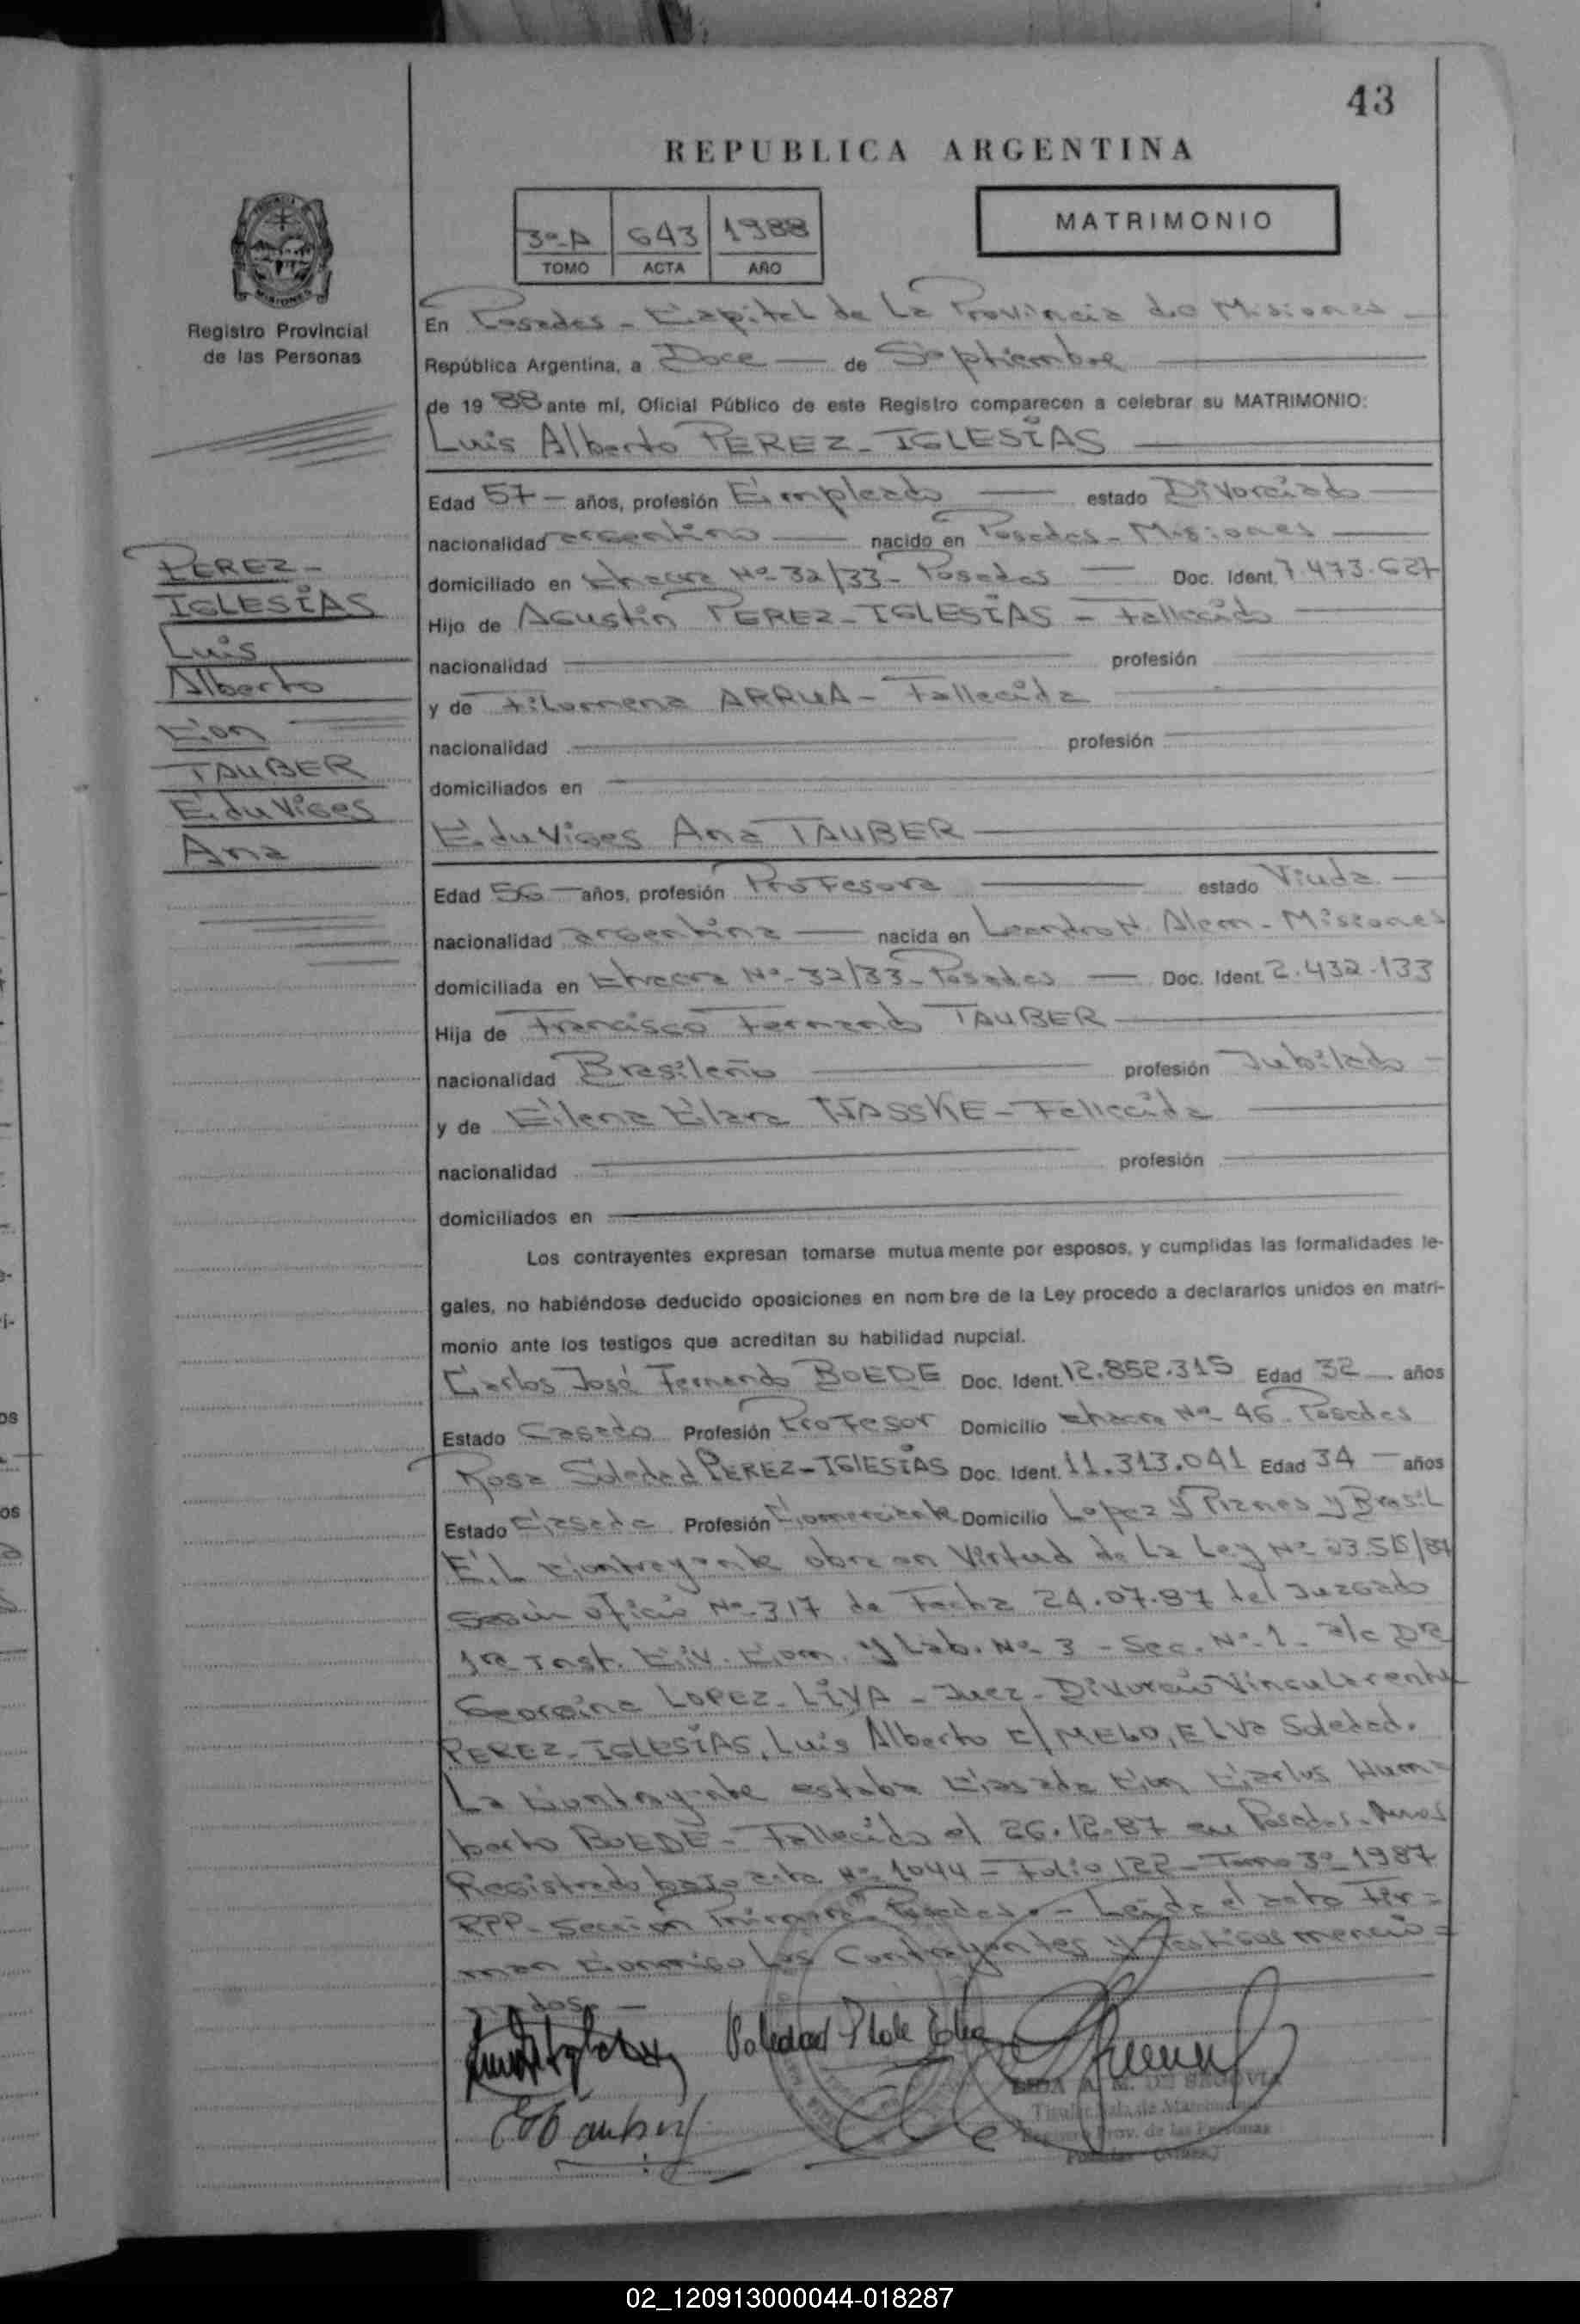 43
REPUBLICA ARGENTINA
3º-A 643 1988
TOMO ACTA AÑO
MATRIMONIO
MISIONES
Registro Provincial
de las Personas
En Posadas - Capital de La Provincia de Misiones
República Argentina, a Doce de Septiembre
de 1988 ante mí, Oficial Público de este Registro comparecen a celebrar su MATRIMONIO:
Luis Alberto PEREZ-IGLESIAS
Edad 57 años, profesión Empleado estado Divorciado
nacionalidad argentino nacido en Posadas - Misiones
domiciliado en Chacra Nº 32/33 - Posadas Doc. Ident. 7.473.627
Hijo de Agustin PEREZ-IGLESIAS - Fallecido
nacionalidad profesión
y de Filomena ARRUA - Fallecida
nacionalidad profesión
domiciliados en
PEREZ-
IGLESIAS
Luis
Alberto
Con
TAUBER
Eduviges
Ana
Eduviges Ana TAUBER
Edad 56 años, profesión Profesora estado Viuda
nacionalidad argentina nacida en Leandro N. Alem - Misiones
domiciliada en Chacra Nº 32/33 - Posadas Doc. Ident. 2.432.133
Hija de Francisco Fernando TAUBER
nacionalidad Brasileño profesión Jubilado
y de Elena Clara - Fallecida
nacionalidad profesión
domiciliados en
Los contrayentes expresan tomarse mutuamente por esposos, y cumplidas las formalidades le-
gales, no habiéndose deducido oposiciones en nombre de la Ley procedo a declararlos unidos en matri-
monio ante los testigos que acreditan su habilidad nupcial.
Carlos José Fernando BOEDE Doc. Ident. 12.852.315 Edad 32 años
Estado Casado Profesión Profesor Domicilio Chacra Nº 46 - Posadas
Rosa Soledad PEREZ-IGLESIAS Doc. Ident. 11.313.041 Edad 34 años
Estado Casada Profesión Comerciante Domicilio Lopez y Planes y Brasil
El Contrayente obra en Virtud de La Ley Nº 23.515/87
según oficio Nº 317 de Fecha 24.07.87 del Juzgado
1ra Inst. Civ. Com. y Lab. Nº 3 - Sec. Nº 1 - a/c DRa
Georgina LOPEZ-LIVA - Juez - Divorcio Vincular
PEREZ-IGLESIAS, Luis Alberto C/ MELO, ELVa Soledad.
La Contrayente estaba Casada Con Carlos Hum=
berto BOEDE - Fallecido el 26.12.87 en Posadas - Mnes
Registrado bajo acta Nº 1044 - Folio 122 - Tomo 3º 1987
RPP - Seccion Primera - Posadas - Leida el acta Fir=
man Conmigo Los Contrayentes y testigos mencio=
nados
LIDA A. M. DE SEGOVIA
Titular Sala de Matrimonios
Registro Prov. de las Personas
Posadas (Mnes.)
02_120913000044-018287